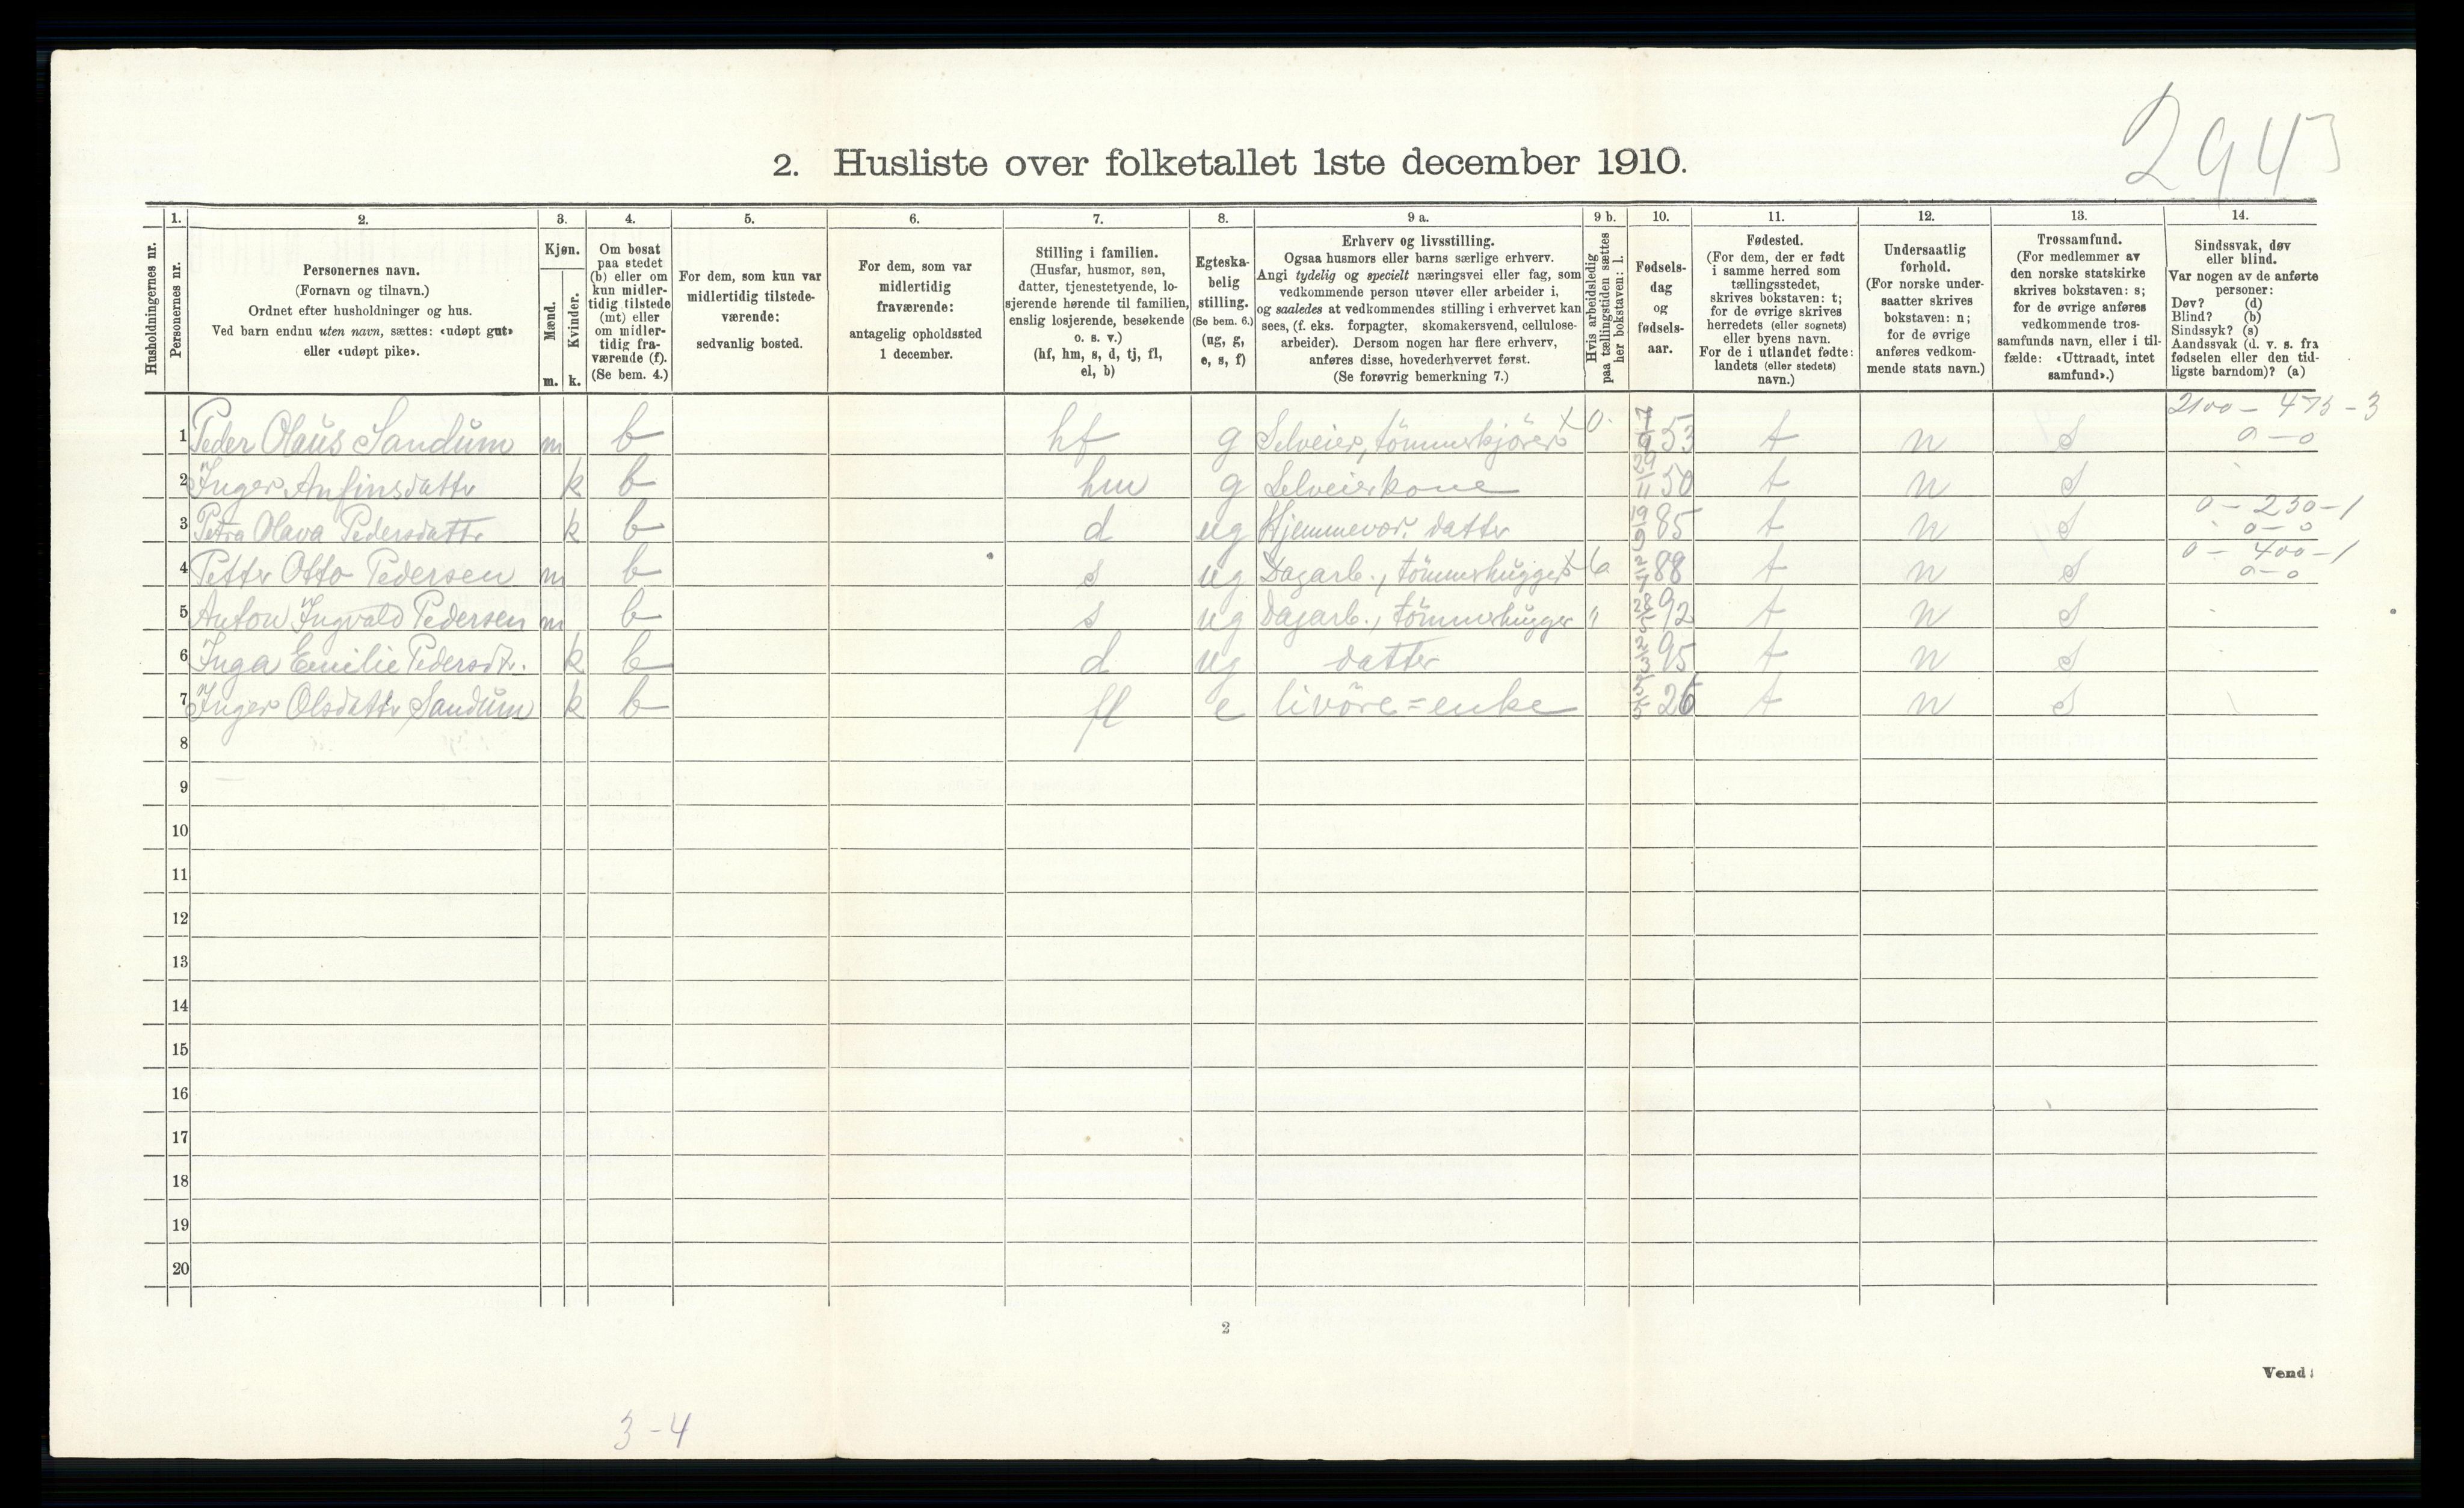 2943
2. Husliste over folketallet 1ste december 1910.
1. 2. 3. 4. 5. 6. 7. 8. 9 a. 9 b. 10. 11. 12. 13. 14.
Husholdningernes nr.
Personernes nr.
Personernes navn.
(Fornavn og tilnavn.)
Ordnet efter husholdninger og hus.
Ved barn endnu uten navn, sættes: «udøpt gut»
eller «udøpt pike».
Kjøn.
Mænd.
Kvinder.
m. k.
Om bosat
paa stedet
(b) eller om
kun midler-
tidig tilstede
(mt) eller
om midler-
tidig fra-
værende (f).
(Se bem. 4.)
For dem, som kun var
midlertidig tilstede-
værende:
sedvanlig bosted.
For dem, som var
midlertidig
fraværende:
antagelig opholdssted
1 december.
Stilling i familien.
(Husfar, husmor, søn,
datter, tjenestetyende, lo-
sjerende hørende til familien,
enslig losjerende, besøkende
o. s. v.)
(hf, hm, s, d, tj, fl,
el, b)
Egteska-
belig
stilling.
(Se bem. 6.)
(ug, g,
e, s, f)
Erhverv og livsstilling.
Ogsaa husmors eller barns særlige erhverv.
Angi tydelig og specielt næringsvei eller fag, som
vedkommende person utøver eller arbeider i,
og saaledes at vedkommendes stilling i erhvervet kan
sees, (f. eks. forpagter, skomakersvend, cellulose-
arbeider). Dersom nogen har flere erhverv,
anføres disse, hovederhvervet først.
(Se forøvrig bemerkning 7.)
Hvis arbeidsledig
paa tællingstiden sættes
her bokstaven: l.
Fødsels-
dag
og
fødsels-
aar.
Fødested.
(For dem, der er født
i samme herred som
tællingsstedet,
skrives bokstaven: t;
for de øvrige skrives
herredets (eller sognets)
eller byens navn.
For de i utlandet fødte:
landets (eller stedets)
navn.)
Undersaatlig
forhold.
(For norske under-
saatter skrives
bokstaven: n;
for de øvrige
anføres vedkom-
mende stats navn.)
Trossamfund.
(For medlemmer av
den norske statskirke
skrives bokstaven: s;
for de øvrige anføres
vedkommende tros-
samfunds navn, eller i til-
fælde: «Uttraadt, intet
samfund».)
Sindssvak, døv
eller blind.
Var nogen av de anførte
personer:
Døv? (d)
Blind? (b)
Sindssyk? (s)
Aandssvak (d. v. s. fra
fødselen eller den tid-
ligste barndom)? (a)
2100 - 475 - 3
1 Peder Olaus Sandum m b hf g Selveier, tømmerkjører x 0. 7/9 53 t n S 0 - 0
2 Inger Anfinsdattr k b hm g Selveierkone 29/11 50 t n S
0 - 250 - 1
3 Petra Olava Pedersdattr k b d ug Hjemmevær. datter 19/9 85 t n S 0 - 0
0 - 400 - 1
4 Petter Otto Pedersen m b s ug Dagarb., tømmerhugger x 6 88 t n S 0 - 0
5 Anton Ingvald Pedersen m b s ug Dagarb., tømmerhugger " 92 t n S
6 Inga Emilie Pedersdtr. k b d ug datter 95 t n S
7 Inger Olsdattr Sandum k b fl e livøre=enke 26 t n S
8
9
10
11
12
13
14
15
16
17
18
19
20
2
Vend!
3-4